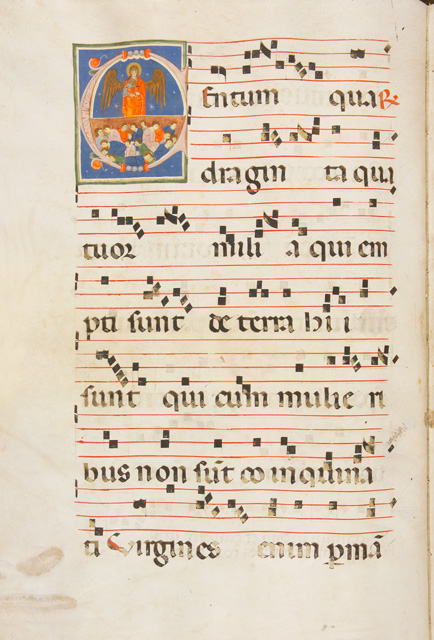 Centum qua R
dragin ta qua
tuor mili a qui em
pti sunt de terra hii
sunt qui cum mulie ri
bus non sūt co inquina
ti Virgines enim p̱mā